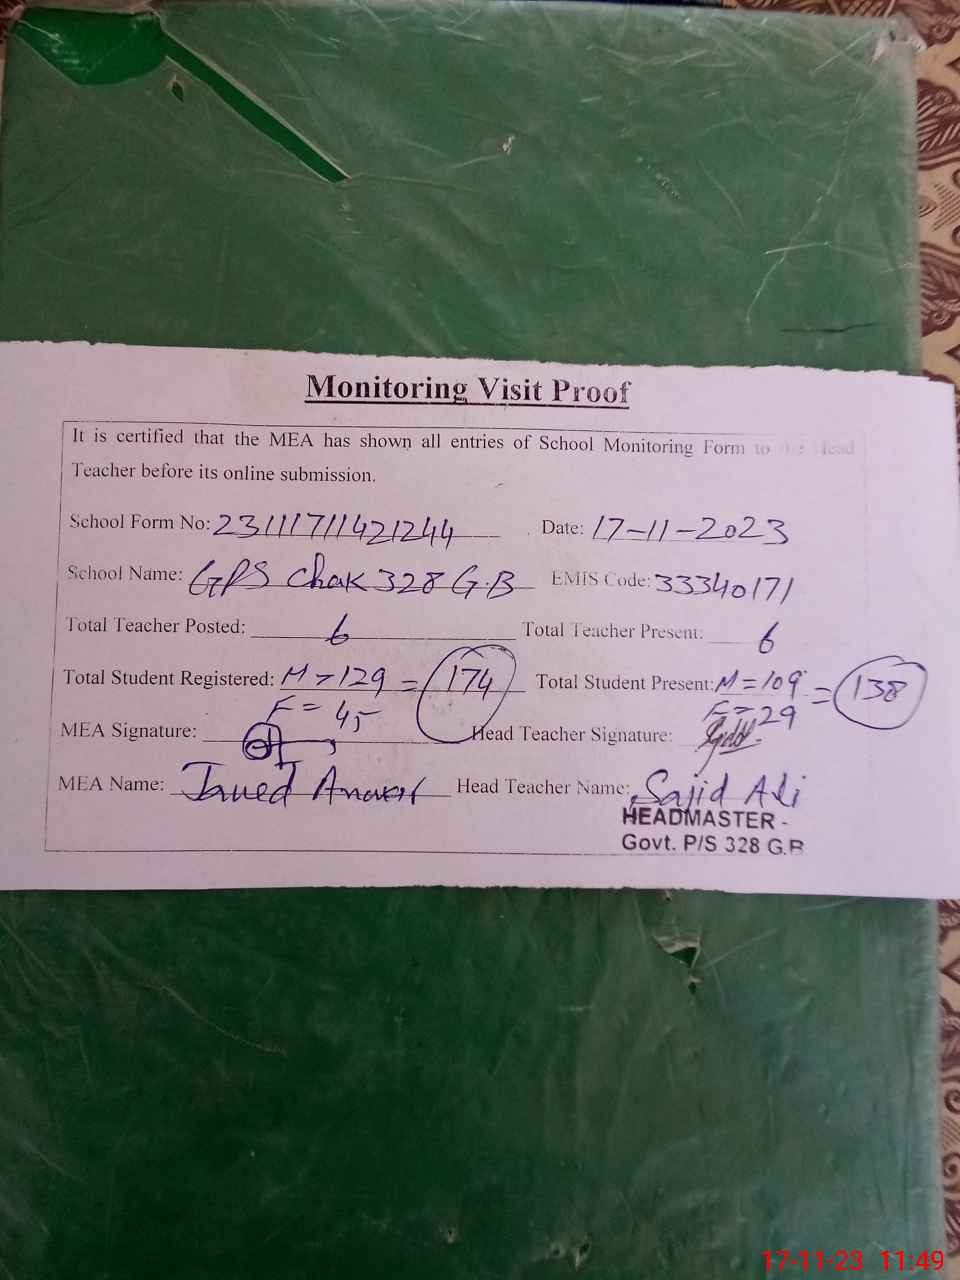 Monitoring Visit Proof
It is certified that the MEA has shown all entries of School Monitoring Form to the Head
Teacher before its online submission.
School Form No: 23111711421244 Date: 17-11-2023
School Name: GPS Chak 328 G.B EMIS Code: 33340171
Total Teacher Posted: 6 Total Teacher Present: 6
Total Student Registered: M = 129 = 174 Total Student Present: M = 109 = 138
F = 45 F = 29
MEA Signature: Head Teacher Signature:
MEA Name: Javed Anwar Head Teacher Name: Sajid Ali
HEADMASTER -
Govt. P/S 328 G.B
17-11-23 11:49